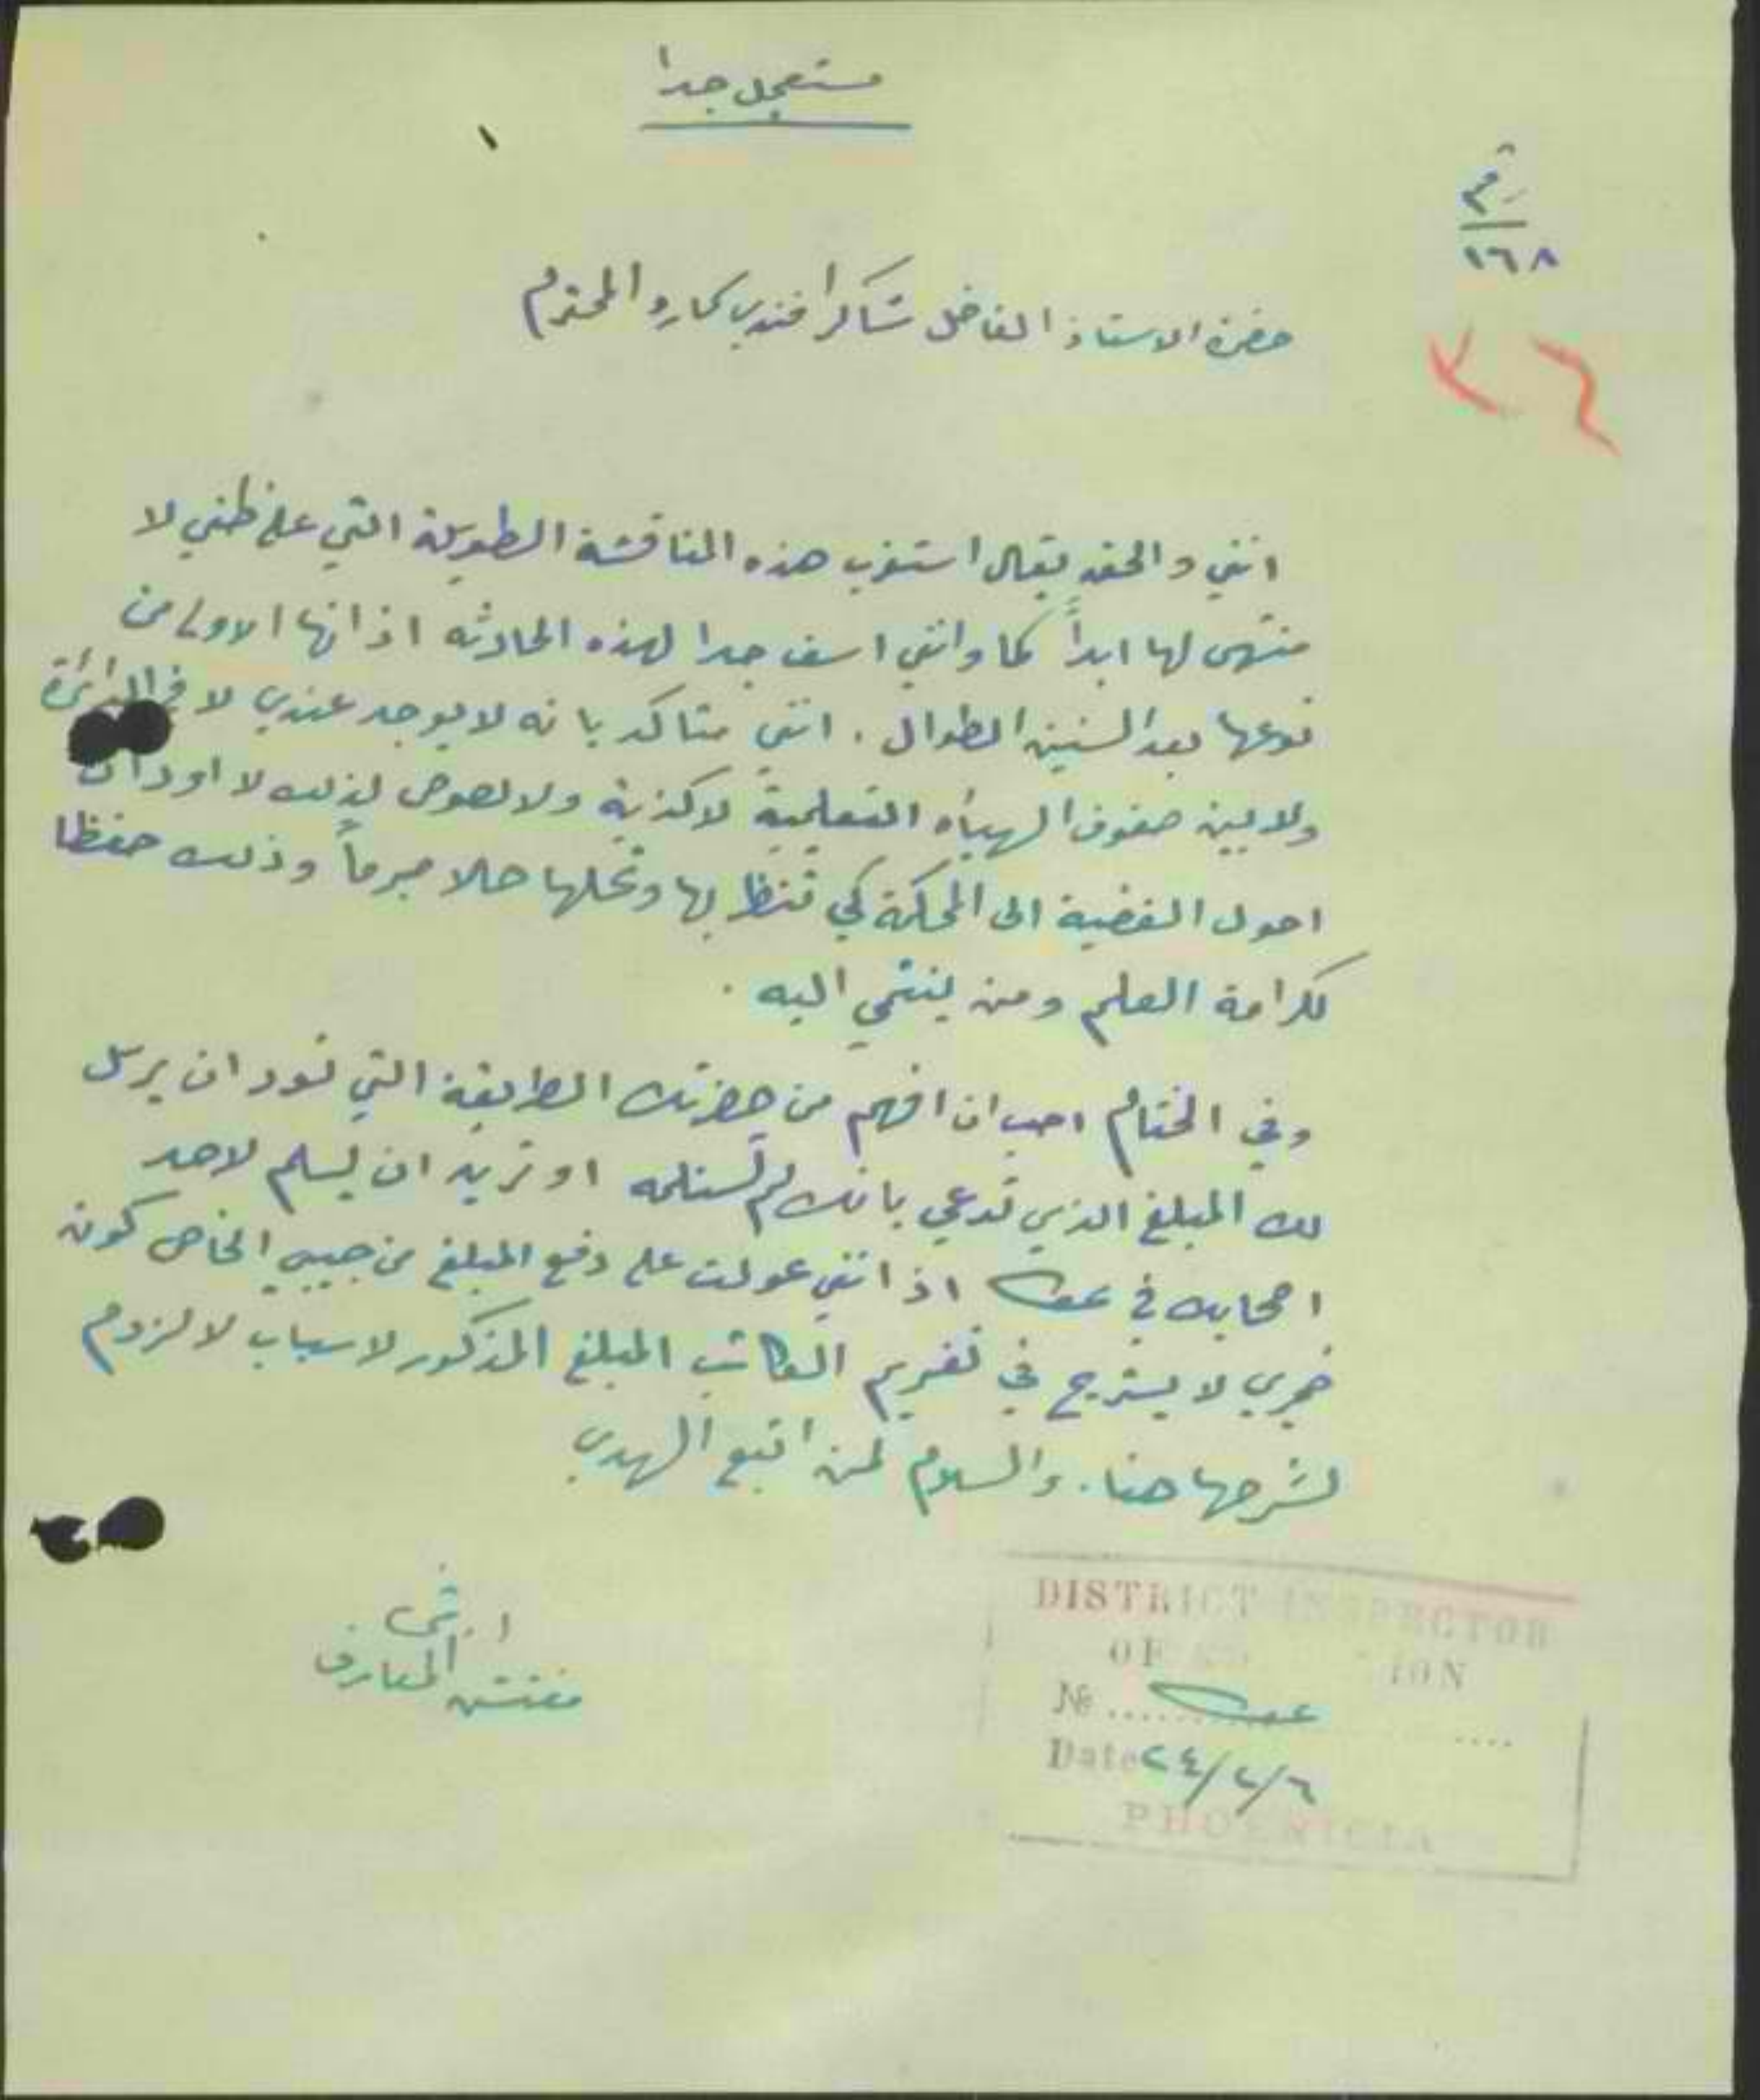 مستعجل جدا
ق م
١٦٨
٣٦
حضرة الاستاذ الفاضل شاكر افندي المحترم
انني والحق يقال استغرب هذه المناقشة الطويلة التي على ظني لا
منتهى لها ابداً كما وانني اسف جدا لهذه الحادثه اذ انها الاولى من
نوعها بعد السنين الطوال . انني متاكد بانه لا يوجد عندي لا في الدائرة
ولا بين صفوف الهيأه التعلمية لا كذبة ولا لصوص لذلك لا اود ان
احول القضية الى المحكمة كي تنظر بها وتحلها حلا مبرماً وذلك حفظا
لكرامة العلم ومن ينتمي اليه .
وفي الختام احب ان افهم من حضرتك الطريقة التي تود ان يرسل
لك المبلغ الذي تدعي بانك لم تستلمه او تريد ان يسلم لاحد
اصحابك في عكا اذ انني عولت على دفع المبلغ من جيبي الخاص كون
ضميري لا يستريح في تغريم الكاتب المبلغ المذكور لاسباب لا لزوم
لشرحها هنا . والسلام لمن اتبع الهدى
مفتش المعارف
DISTRICT INSPECTOR
OF EDUCATION
№ ..... عكا .....
Date ٢٤/٢/٦
PHOENICIA